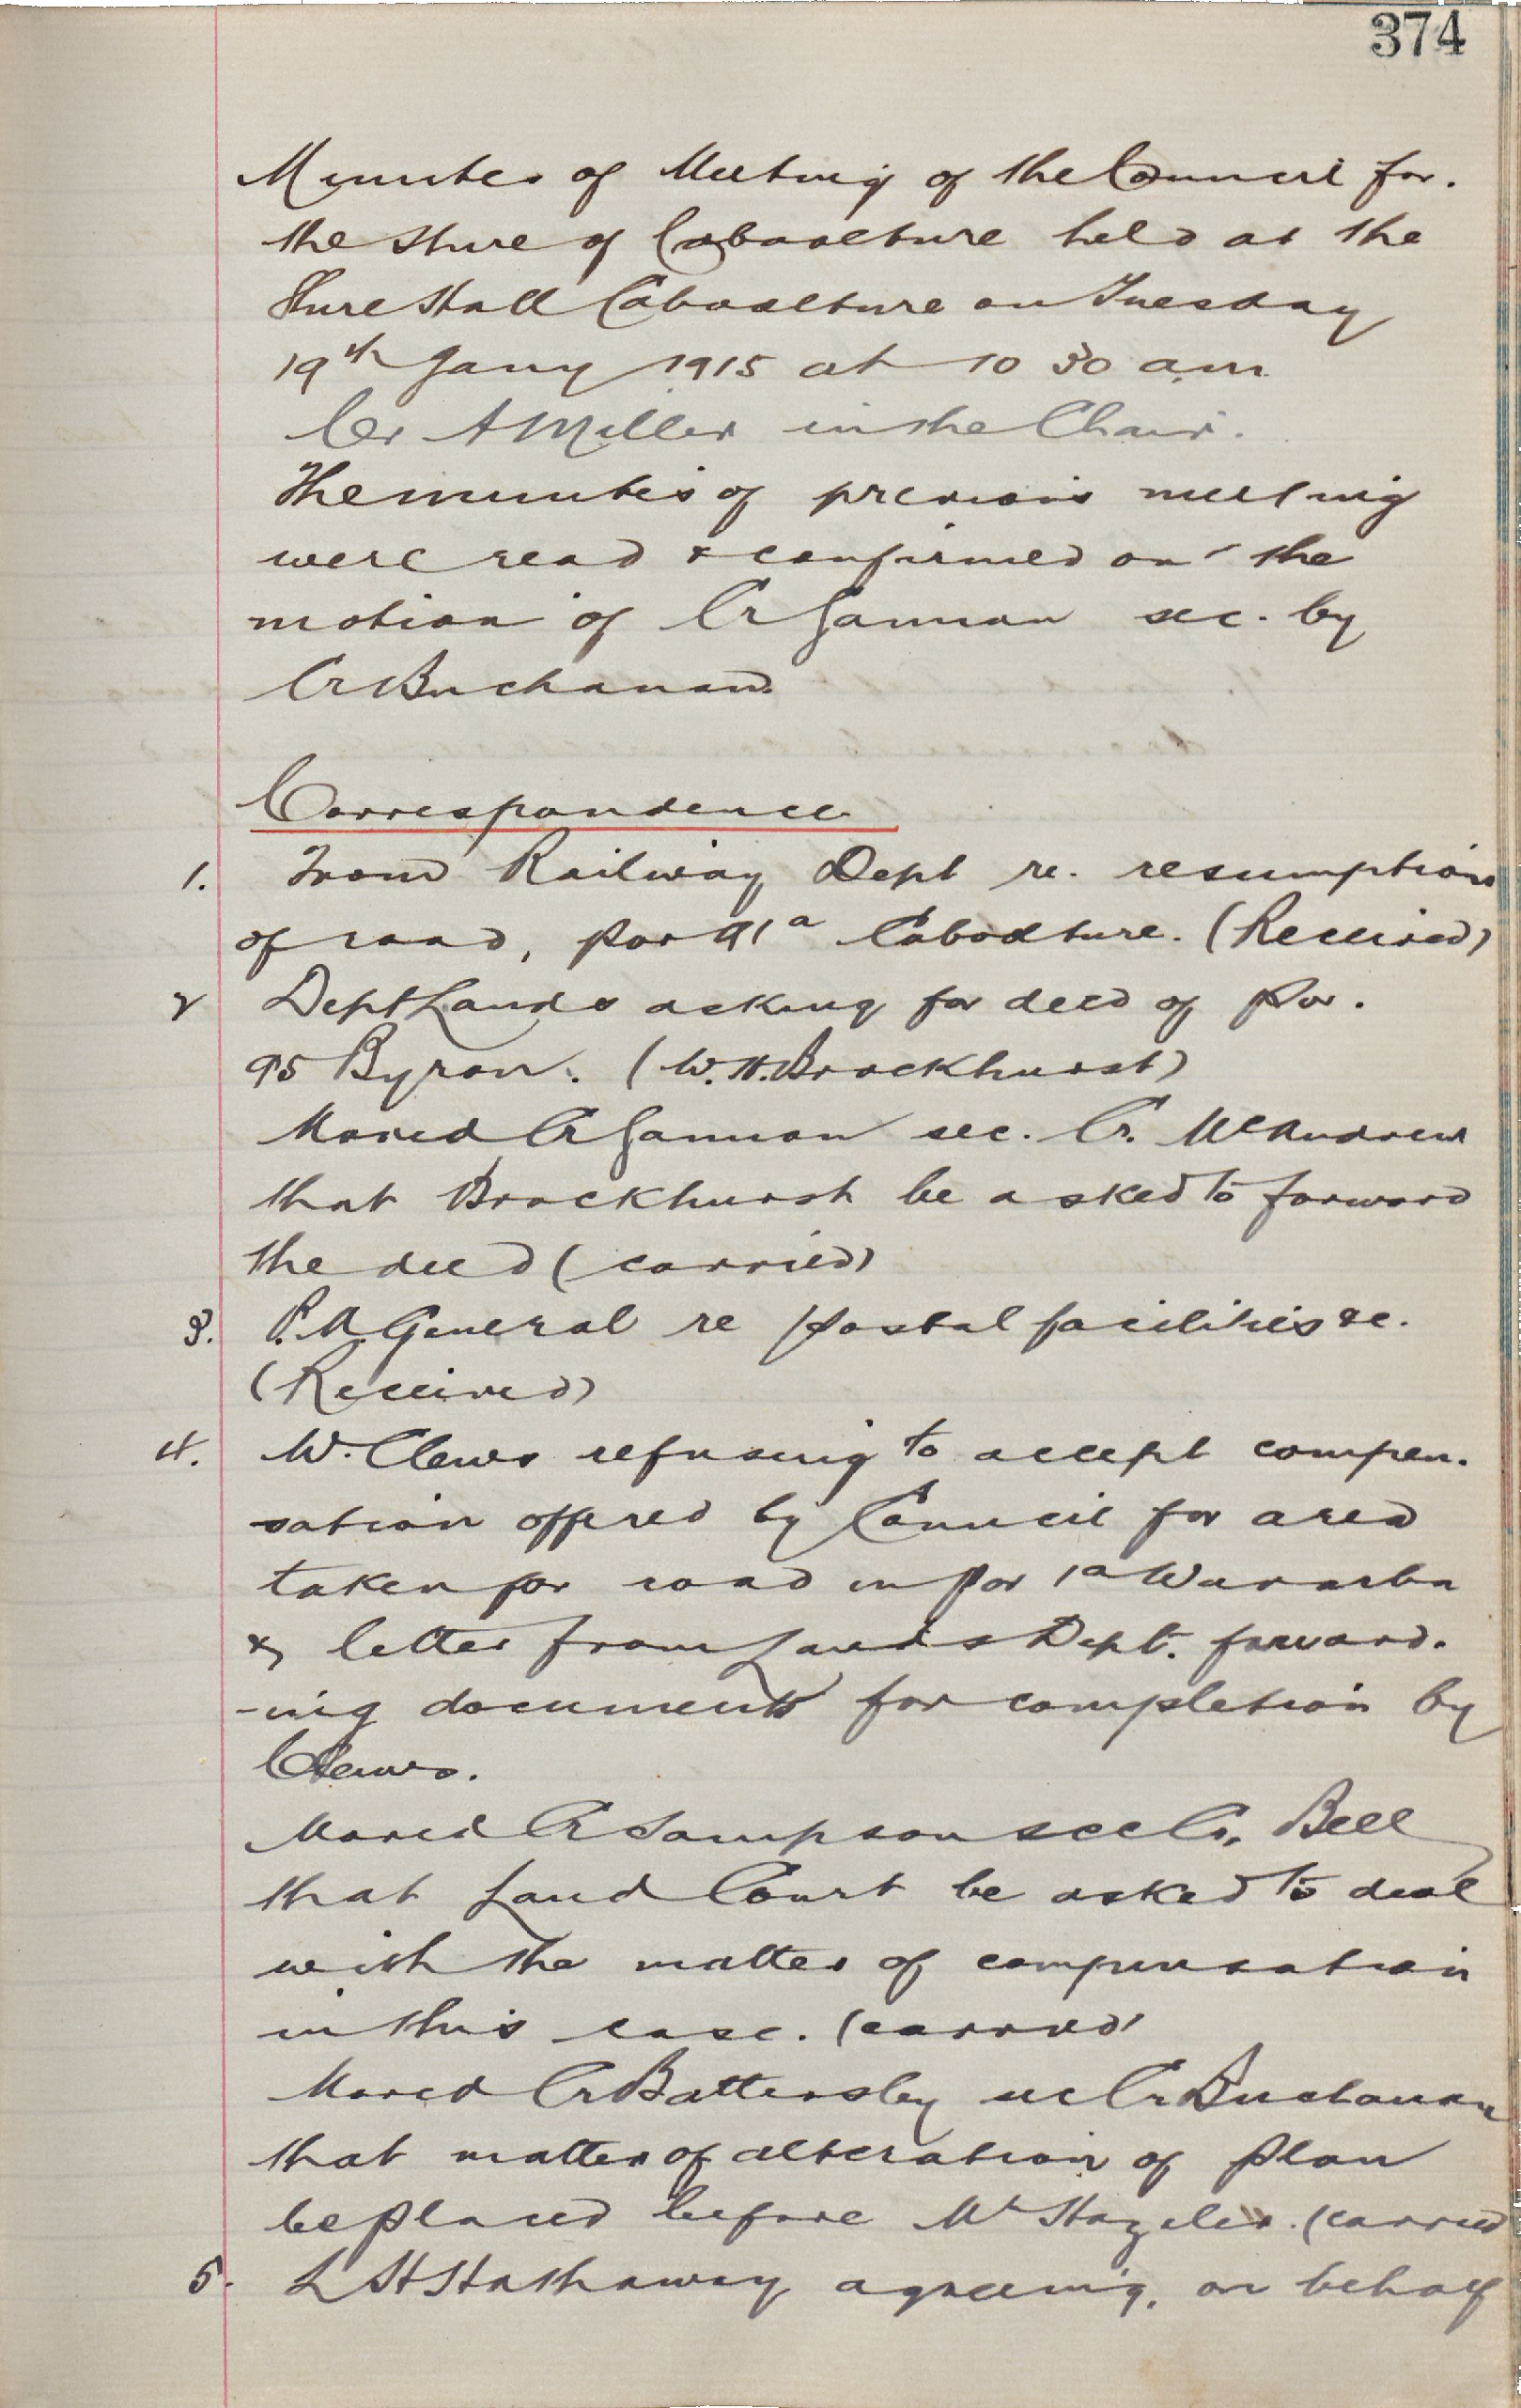 374
Minutes of Meeting of the Council for
the Shire of Caboolture held at the
Shire Hall Caboolture on Tuesday
19th Jany 1915 at 10 30 am
Cr A Miller in the Chair.
The minutes of previous meeting
were read & confirmed on the
motion of Cr Gannon sec. by
Cr Buchanan
Correspondence
1. From Railway Dept re. resumption
of road, por 91a Caboolture. (Received)
2 Dept Lands asking for deed of Por.
95 Byron. (W. H. Brockhurst)
Moved Cr Gannon sec. Cr. McAndrew
that Brockhurst be asked to forward
the deed (carried)
3. P.M. General re postal facilities &c.
(Received)
4. W. Clews refusing to accept compen-
sation offered by Council for area
taken for road in Por 1a Wararba
& letter from Lands Dept. forward-
-ing documents for completion by
Clews.
Moved Cr Sampson sec Cr. Bell
that Land Court be asked to deal
with the matter of compensation
in this case. (carried)
Moved Cr Battersby sec Cr Buchanan
that matter of alteration of plan
be placed before Mr (carried
5. L H Hathaway agreeing, on behalf